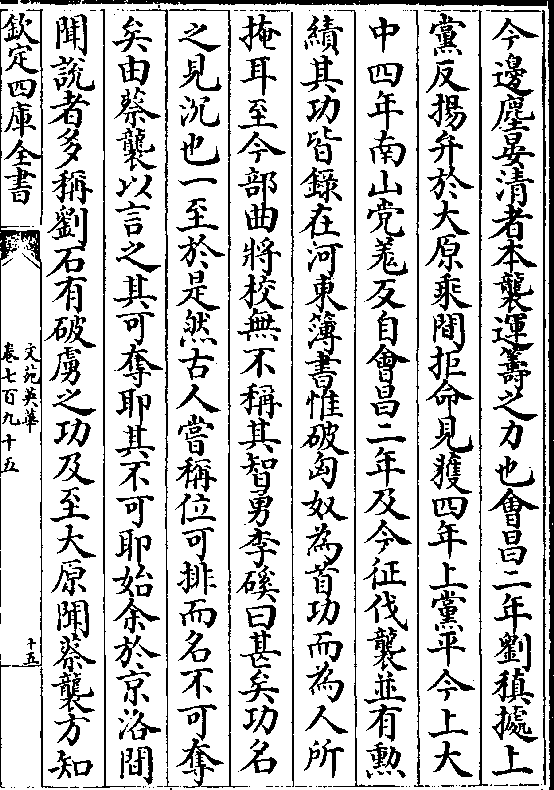 今邊塵晏清者本襲運籌之力也會昌二年劉稹據上
黨反揚弁於大原乘間拒命見獲四年上黨平今上大
中四年南山党羗反自會昌二年及今征伐襲並有勲
績其功皆錄在河東薄書惟破匈奴為首功而為人所
掩耳至今部曲將校無不稱其智勇李磎曰甚矣功名
之見沉也一至於是然古人嘗稱位可排而名不可奪
矣由蔡襲以言之其可奪耶其不可耶始余於京洛間
聞說者多稱劉石有破虜之功及至大原聞蔡襲方知
欽定四庫全書
文苑英華
卷七百九十五
十五